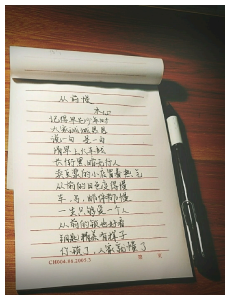 从前慢
木心
记得早先少年时
大家诚诚恳恳
说一句 是一句
清早上火车站
长街黑暗无行人
卖豆浆的小店冒着热气
从前的日色变得慢
车、马、邮件都慢
一生只够爱一个人
从前的锁也好看
钥匙精美有样子
你锁了,人家就懂了